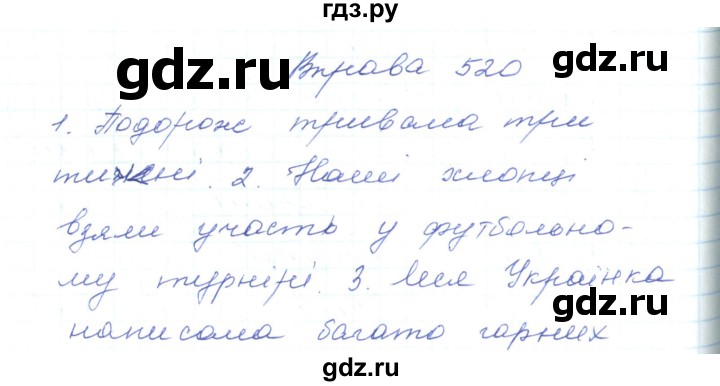 гдз.ру
gdz.ru gdz.ru
Вправа 520
1. Подорож тривала три
тижні. 2. Наші хлопці
взяли участь у футбольно-
му турнірі. 3. Леся Українка
gdz.ru gdz.ru
написала багато гарних
gdz.ru